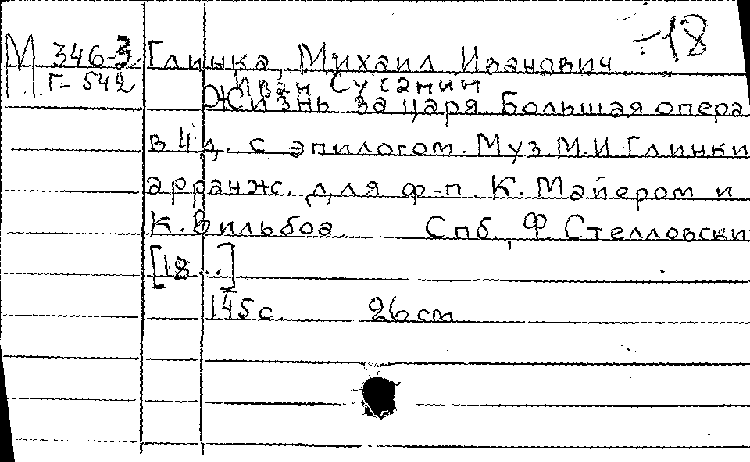 ÷18
М 346-3 Глинка, Михаил Иванович
Г-542 Иван Сусанин
Жизнь за царя Большая опера
в 4 д. с эпилогом. Муз. М.И. Глинки
арранж. для ф-п. К. Майером и
К. Вильбоа. Спб, Ф. Стелловски
[18..]
145 с. 26 см